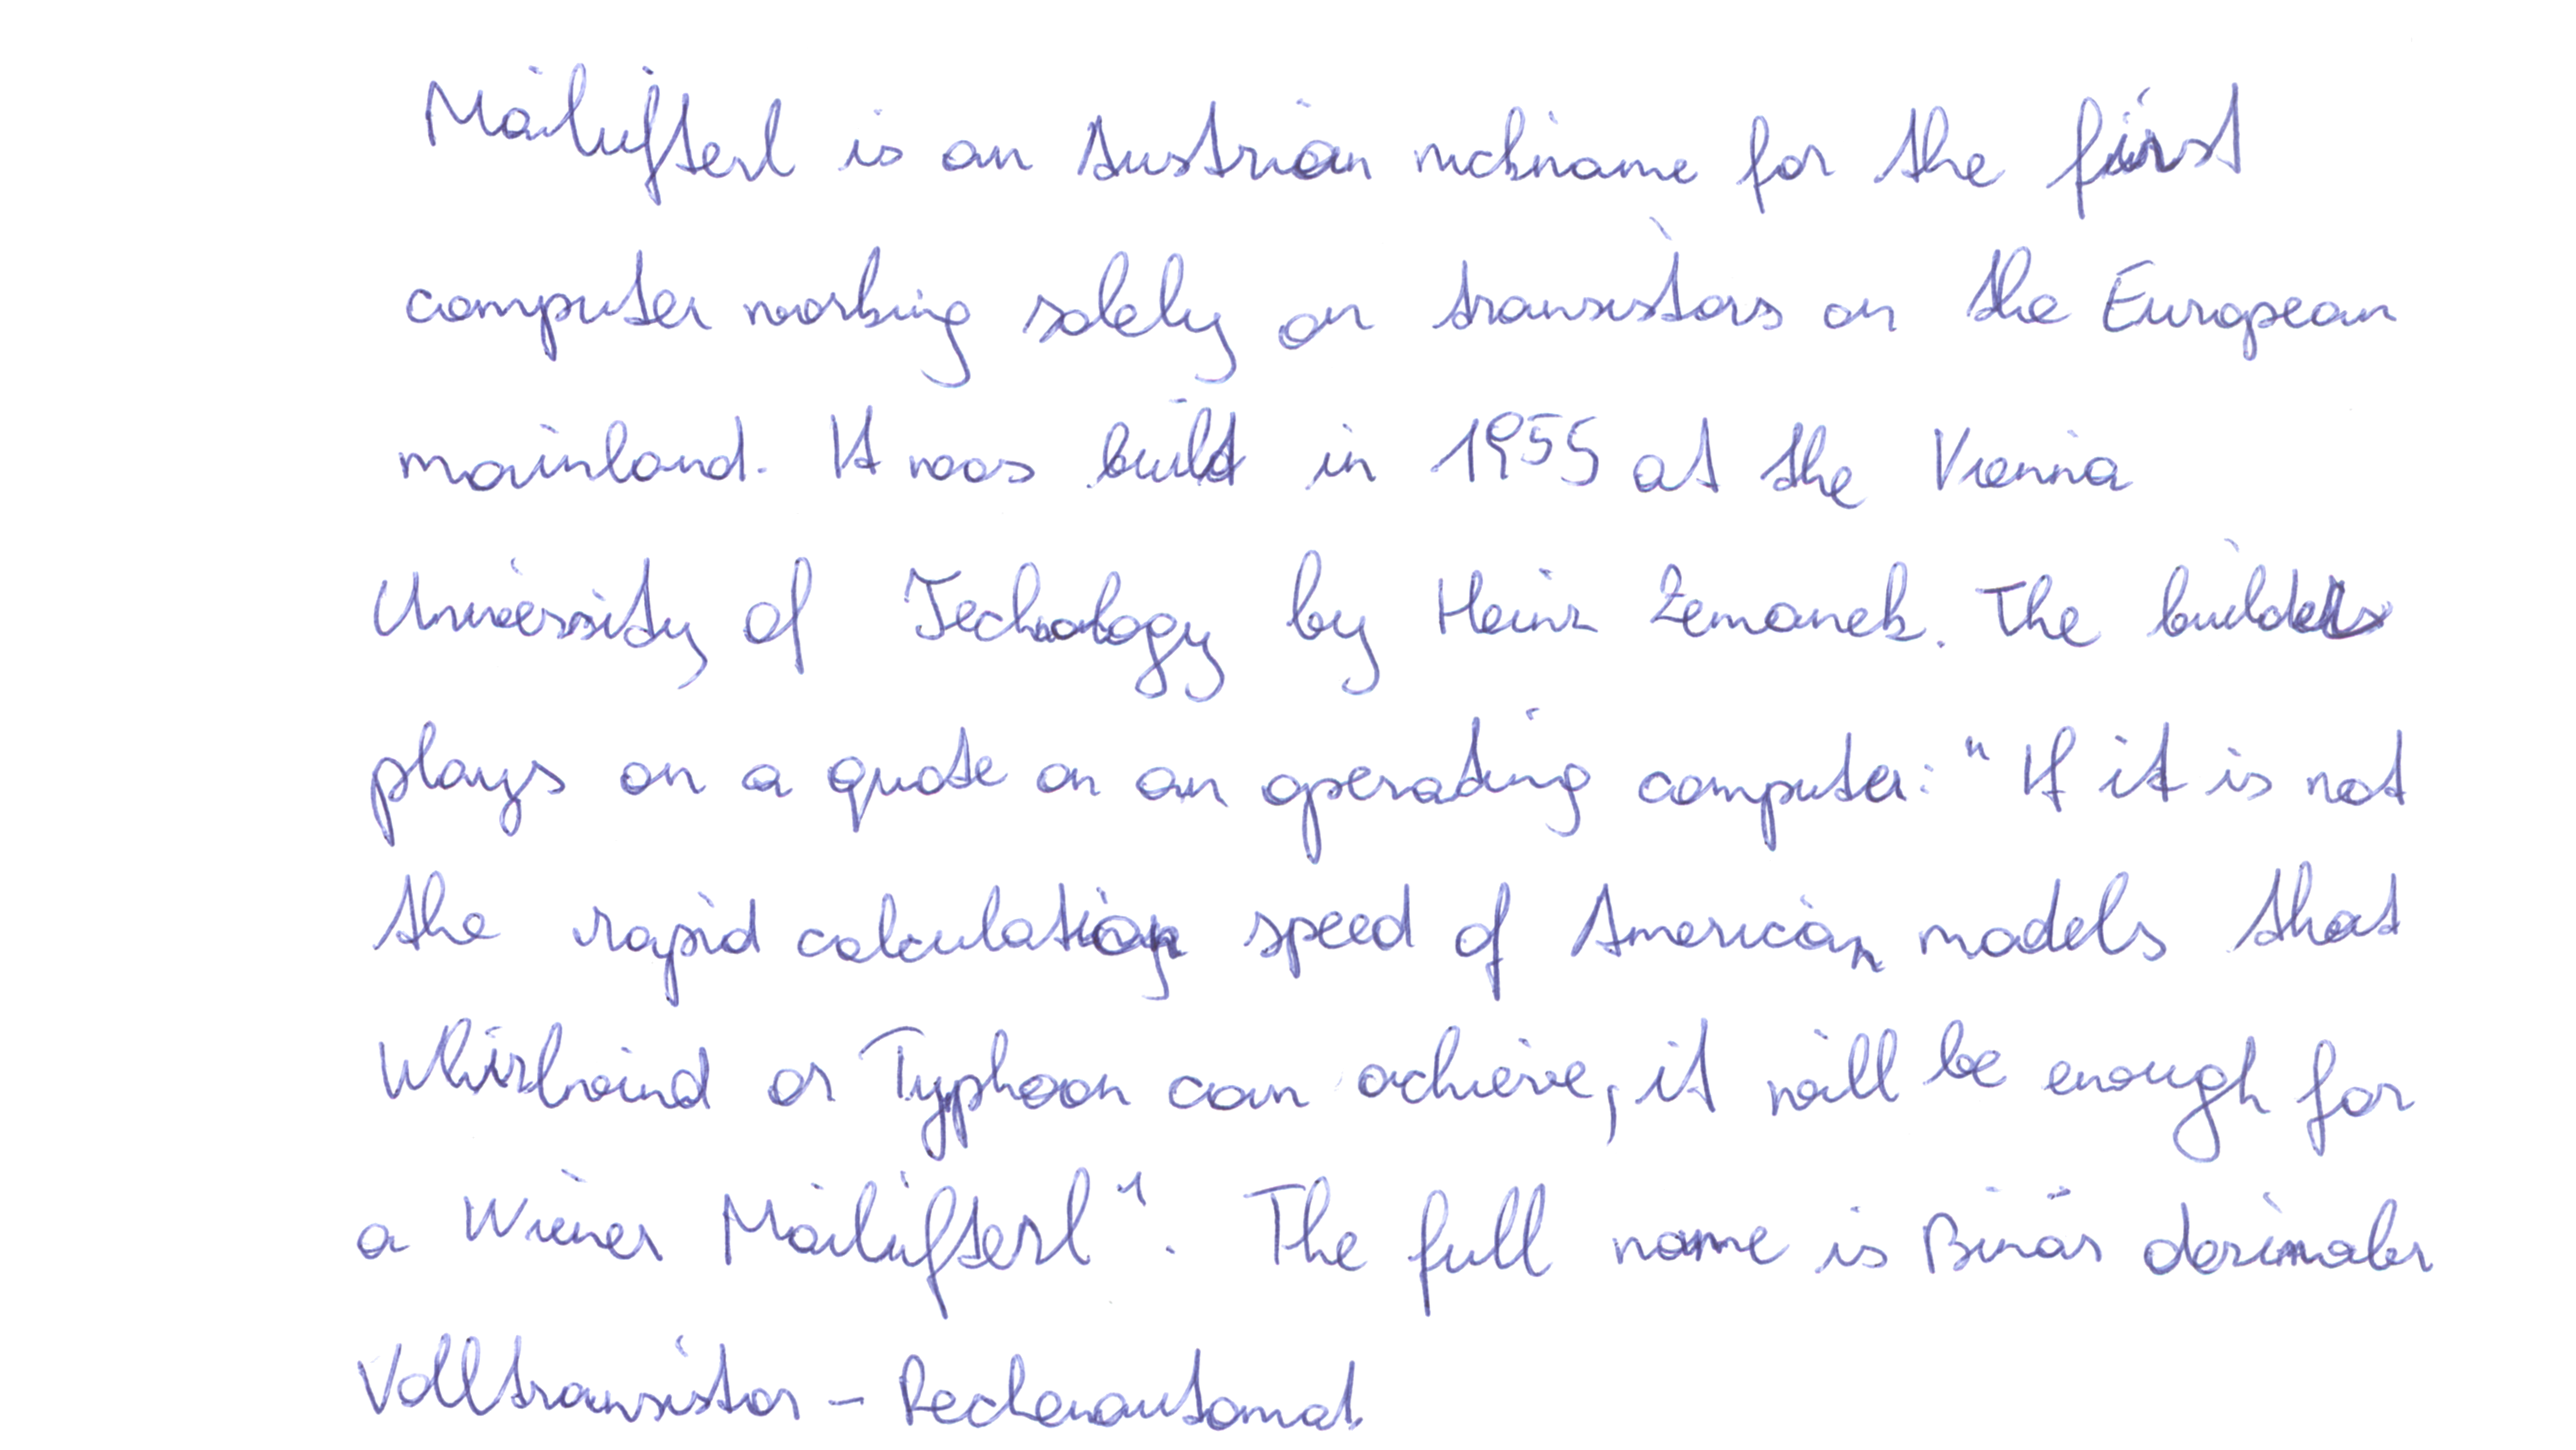 Mailüfterl is an Austrian nickname for the first
computer working solely on transistors on the European
mainland. It was build in 1955 at the Vienna
University of Technology by Heinz Zemanek. The builders
plays on a quote on an operating computer: "If it is not
the rapid calculation speed of American models that
Whirlwind or Typhoon can achieve, it will be enough for
a Wiener Mailüfterl". The full name is Binär dezimaler
Volltransistor - Rechenautomat